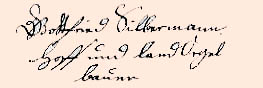 Gottfried Silbermann
Hoff und land Orgel
bauer